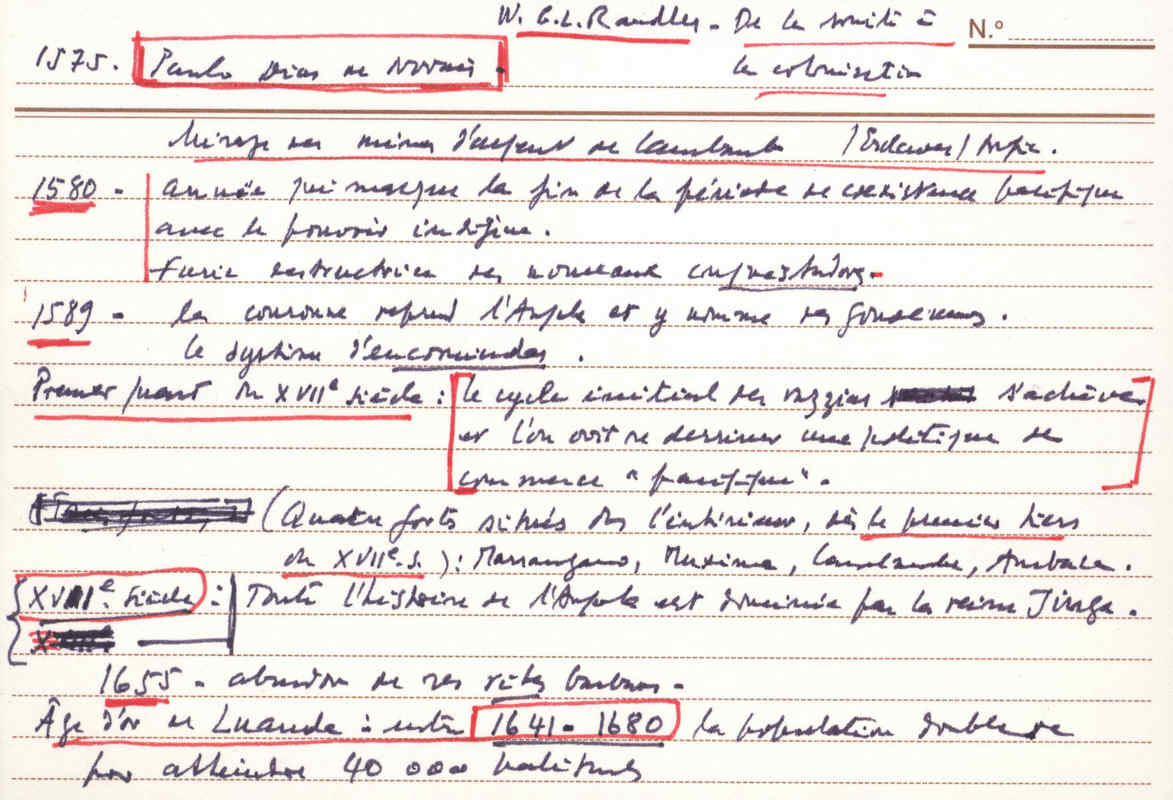 W. G. L. Randles - De la traite à
N.º
1575. Paulo Dias de Novais -
la colonisation
Mirage des mines d'argent de Cambambe / Esclaves /
1580 - année qui marque la fin de la période de coexistence pacifique
avec le pouvoir indigène.
Furie destructrice des nouveaux conquistadors.
1589 - la couronne reprend l'Angola et y nomme des gouverneurs.
le système d'encomiendas.
Premier quart du XVIIe siècle : le cycle initial des razzias s'achève
et l'on voit se dessiner une politique de
commerce "pacifique".
(Quatre forts situés ds l'intérieur, dès le premier tiers
du XVIIe s.) : Massangano, Muxima, Cambambe, Ambaca.
XVIIe siècle : Toute l'histoire de l'Angola est dominée par la reine Jinga.
1655 - abandon de ses rites barbares -
Âge d'or de Luanda : entre 1641 - 1680 la population double
pour atteindre 40 000 habitants